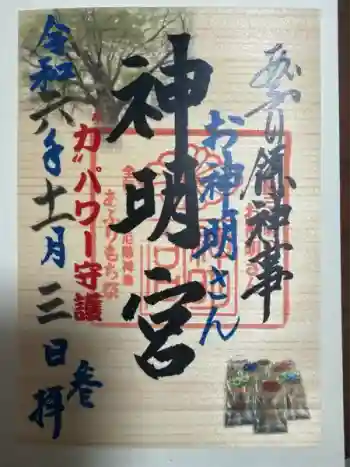 あぶり餅神事
お神明さん
神明宮
"力"パワー守護
令和六年十一月三日参拝
あぶりもち祭